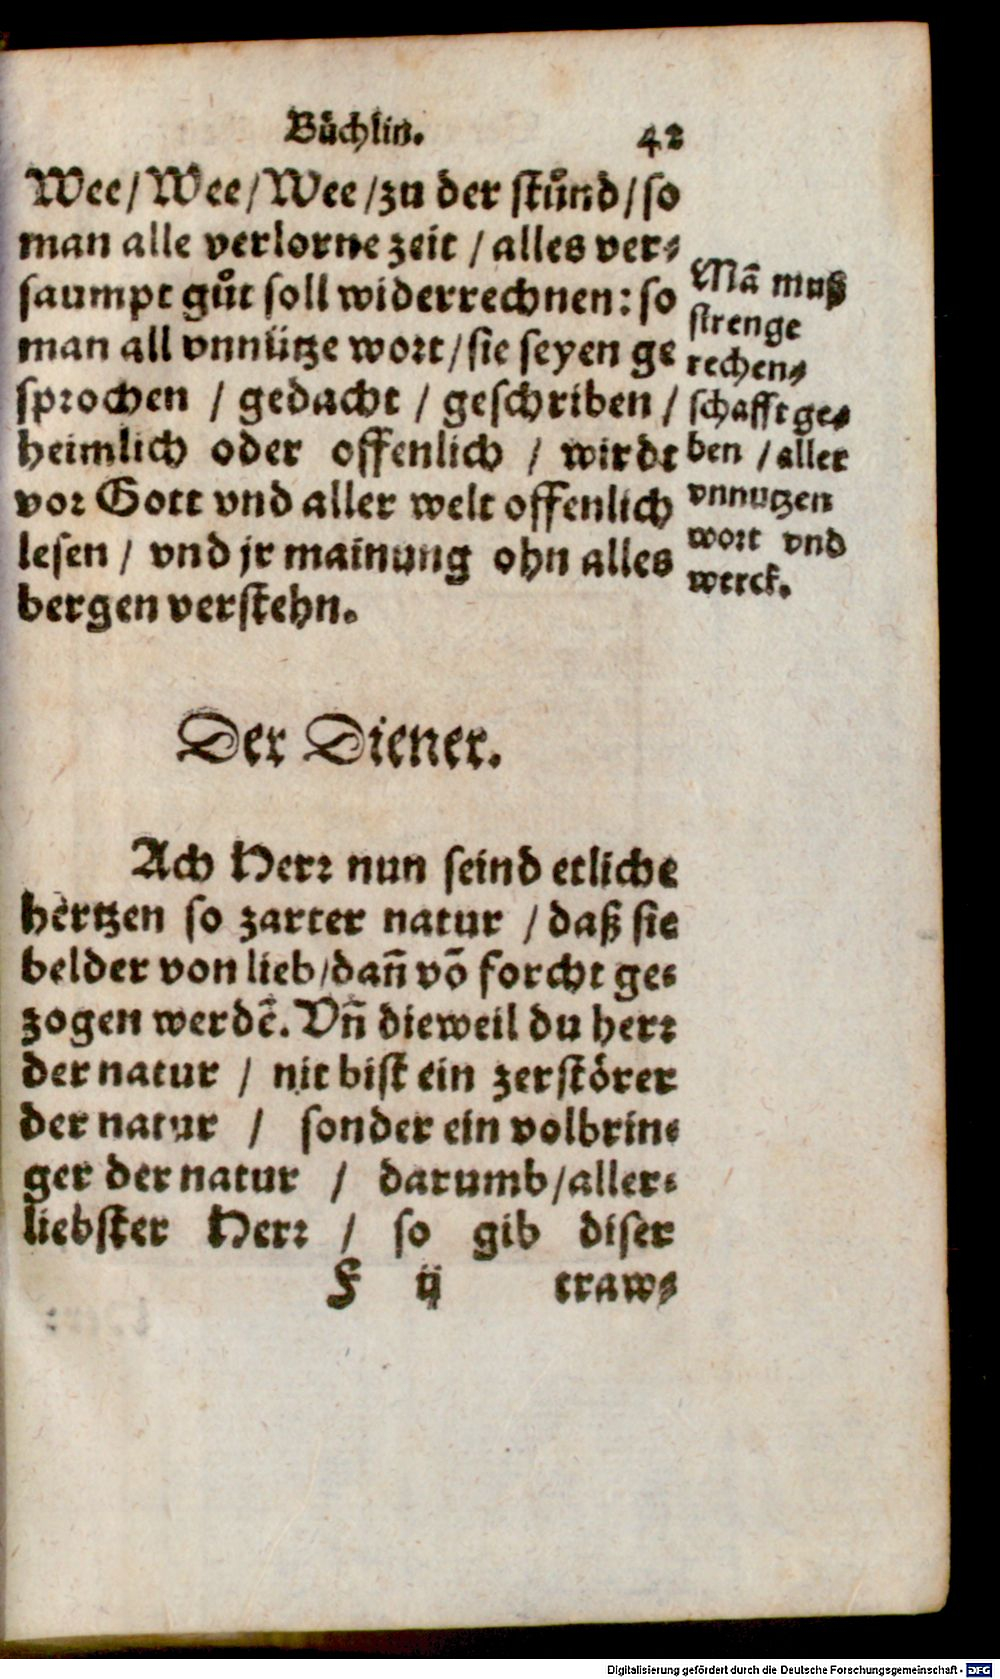 Büchlin. 42
Wee/ Wee/ Wee/ zu der stůnd/ so
man alle verlorne zeit / alles ver⸗
saumpt gůt soll widerrechnen: so
man all vnnütze wort/ sie seyen ge
sprochen / gedacht / geschriben /
heimlich oder offenlich / wirdt
vor Gott vnd aller welt offenlich
lesen / vnd jr mainung ohn alles
bergen verstehn.
Mã muß
strenge
rechen⸗
schafft ge⸗
ben / aller
vnnutzen
wort vnd
werck.
Der Diener.
Ach Herr nun seind etliche
hertzen so zarter natur / daß sie
belder von lieb/ dañ võ forcht ge⸗
zogen werdẽ. Vñ dieweil du herr
der natur / nit bist ein zerstörer
der natur / sonder ein volbrin⸗
ger der natur / darumb/ aller⸗
liebster Herr / so gib diser
F ij traw⸗
Digitalisierung gefördert durch die Deutsche Forschungsgemeinschaft - DFG